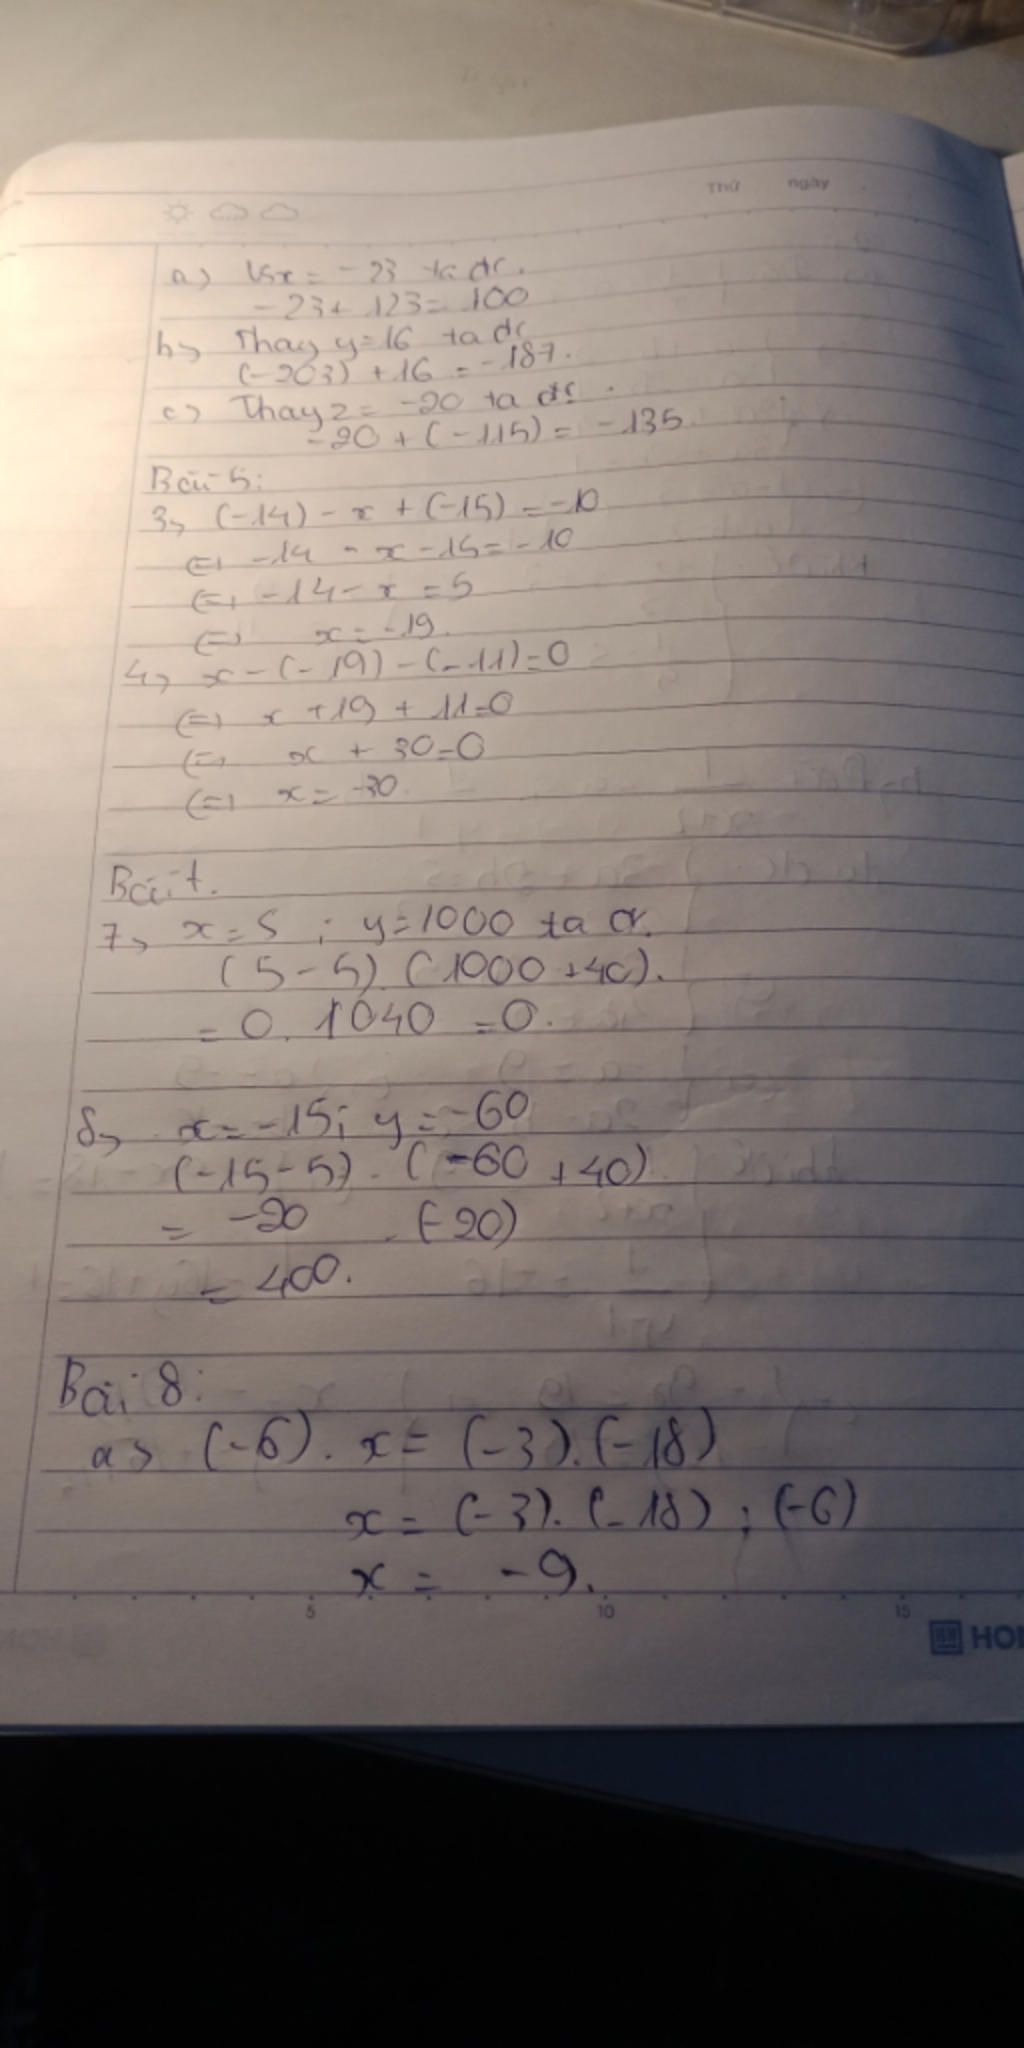 Thứ ngày
a) Vs x = -23 ta dc.
-23 + 123 = 100
b) Thay y = 16 ta dc
(-203) + 16 = -187.
c) Thay z = -20 ta dc.
-20 + (-115) = -135
Bài 5:
3, (-14) - x + (-15) = -10
(=) -14 - x - 15 = -10
(=) -14 - x = 5
(=) x = -19.
4, x - (-19) - (-11) = 0
(=) x + 19 + 11 = 0
(=) x + 30 = 0
(=) x = -30.
Bài 7.
7, x = 5 ; y = 1000 ta dc.
(5-5). (1000 + 40).
= 0. 1040 = 0.
8, x = -15; y = -60
(-15-5). (-60 + 40)
= -20 . (-20)
= 400.
Bài 8:
a) (-6). x = (-3).(-18)
x = (-3). (-18) : (-6)
x = -9.
5 10 15
HO